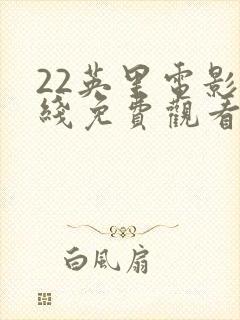 22英里電影
綫免費觀看
白風扇